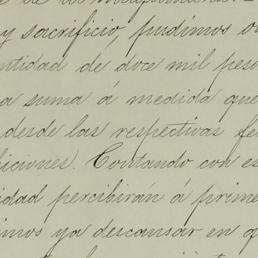 y sacrificio, pudimos o
ntidad de doce mil pes
a suma á medida que
desde las respectivas fe
iciones. Contando con es
idad percibirán á prime
imos ya descansar en q